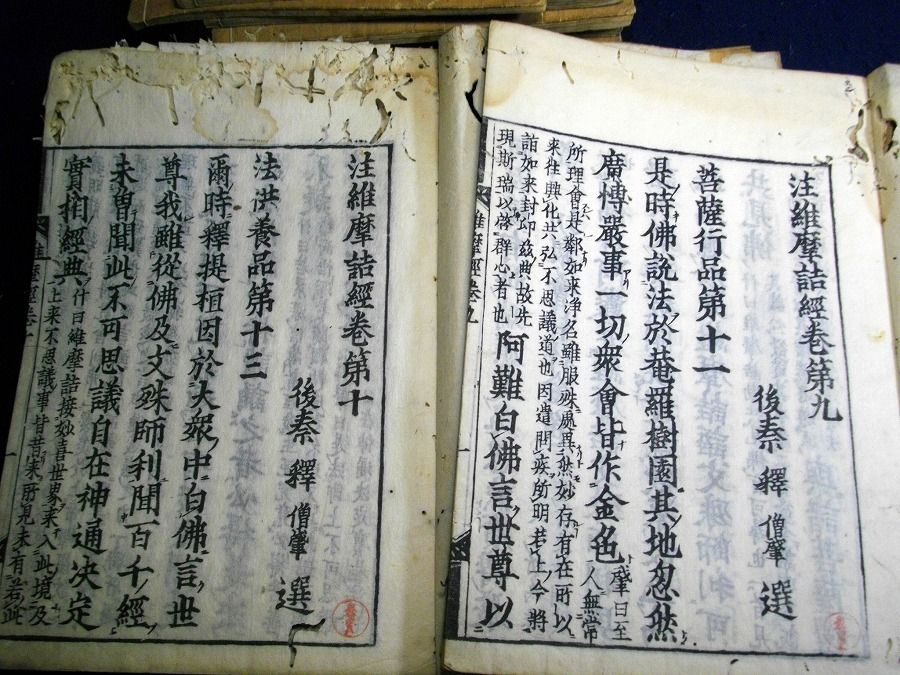 注維摩詰經卷第九
後秦 釋 僧肇 選
菩薩行品第十一
是時佛說法於菴羅樹園其地忽然
廣博嚴事一切衆會皆作金色 肇曰至人無常
所理會是鄰如來淨名雖服殊處異然妙存有在所以
來往興化共弘不思議道也因遣問疾所明若上今將
詣如來封印茲典故先現斯瑞以啓群心者也 阿難白佛言世尊以
維摩經卷九
注維摩詰經卷第十
後秦 釋 僧肇 選
法洪養品第十三
爾時釋提桓因於大衆中白佛言世
尊我雖從佛及文殊師利聞百千經
未曾聞此不可思議自在神通決定
實相經典 什曰維摩詰接妙喜世界來入此境及上來不思議事皆昔來所見未有若此
維摩經卷